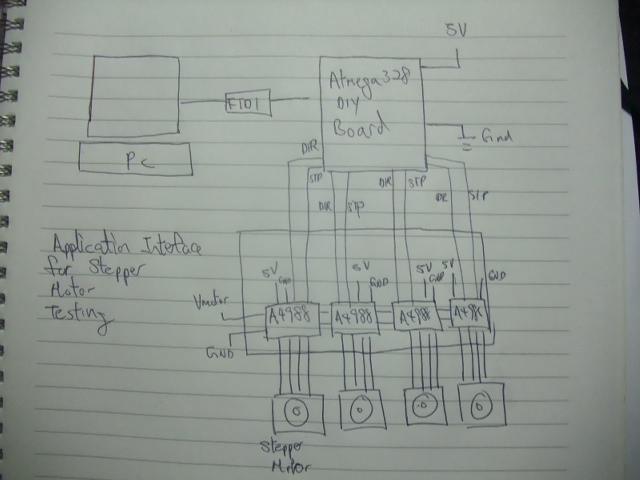 5V
FTDI
Atmega328
DIY
Board
Gnd
PC
DIR
STP
DIR
STP
DIR
STP
DIR
STP
Application Interface
for Stepper
Motor
Testing
5V
GND
5V
GND
5V
GND
5V
GND
Vmotor
A4988
A4988
A4988
A4988
GND
Stepper
Motor